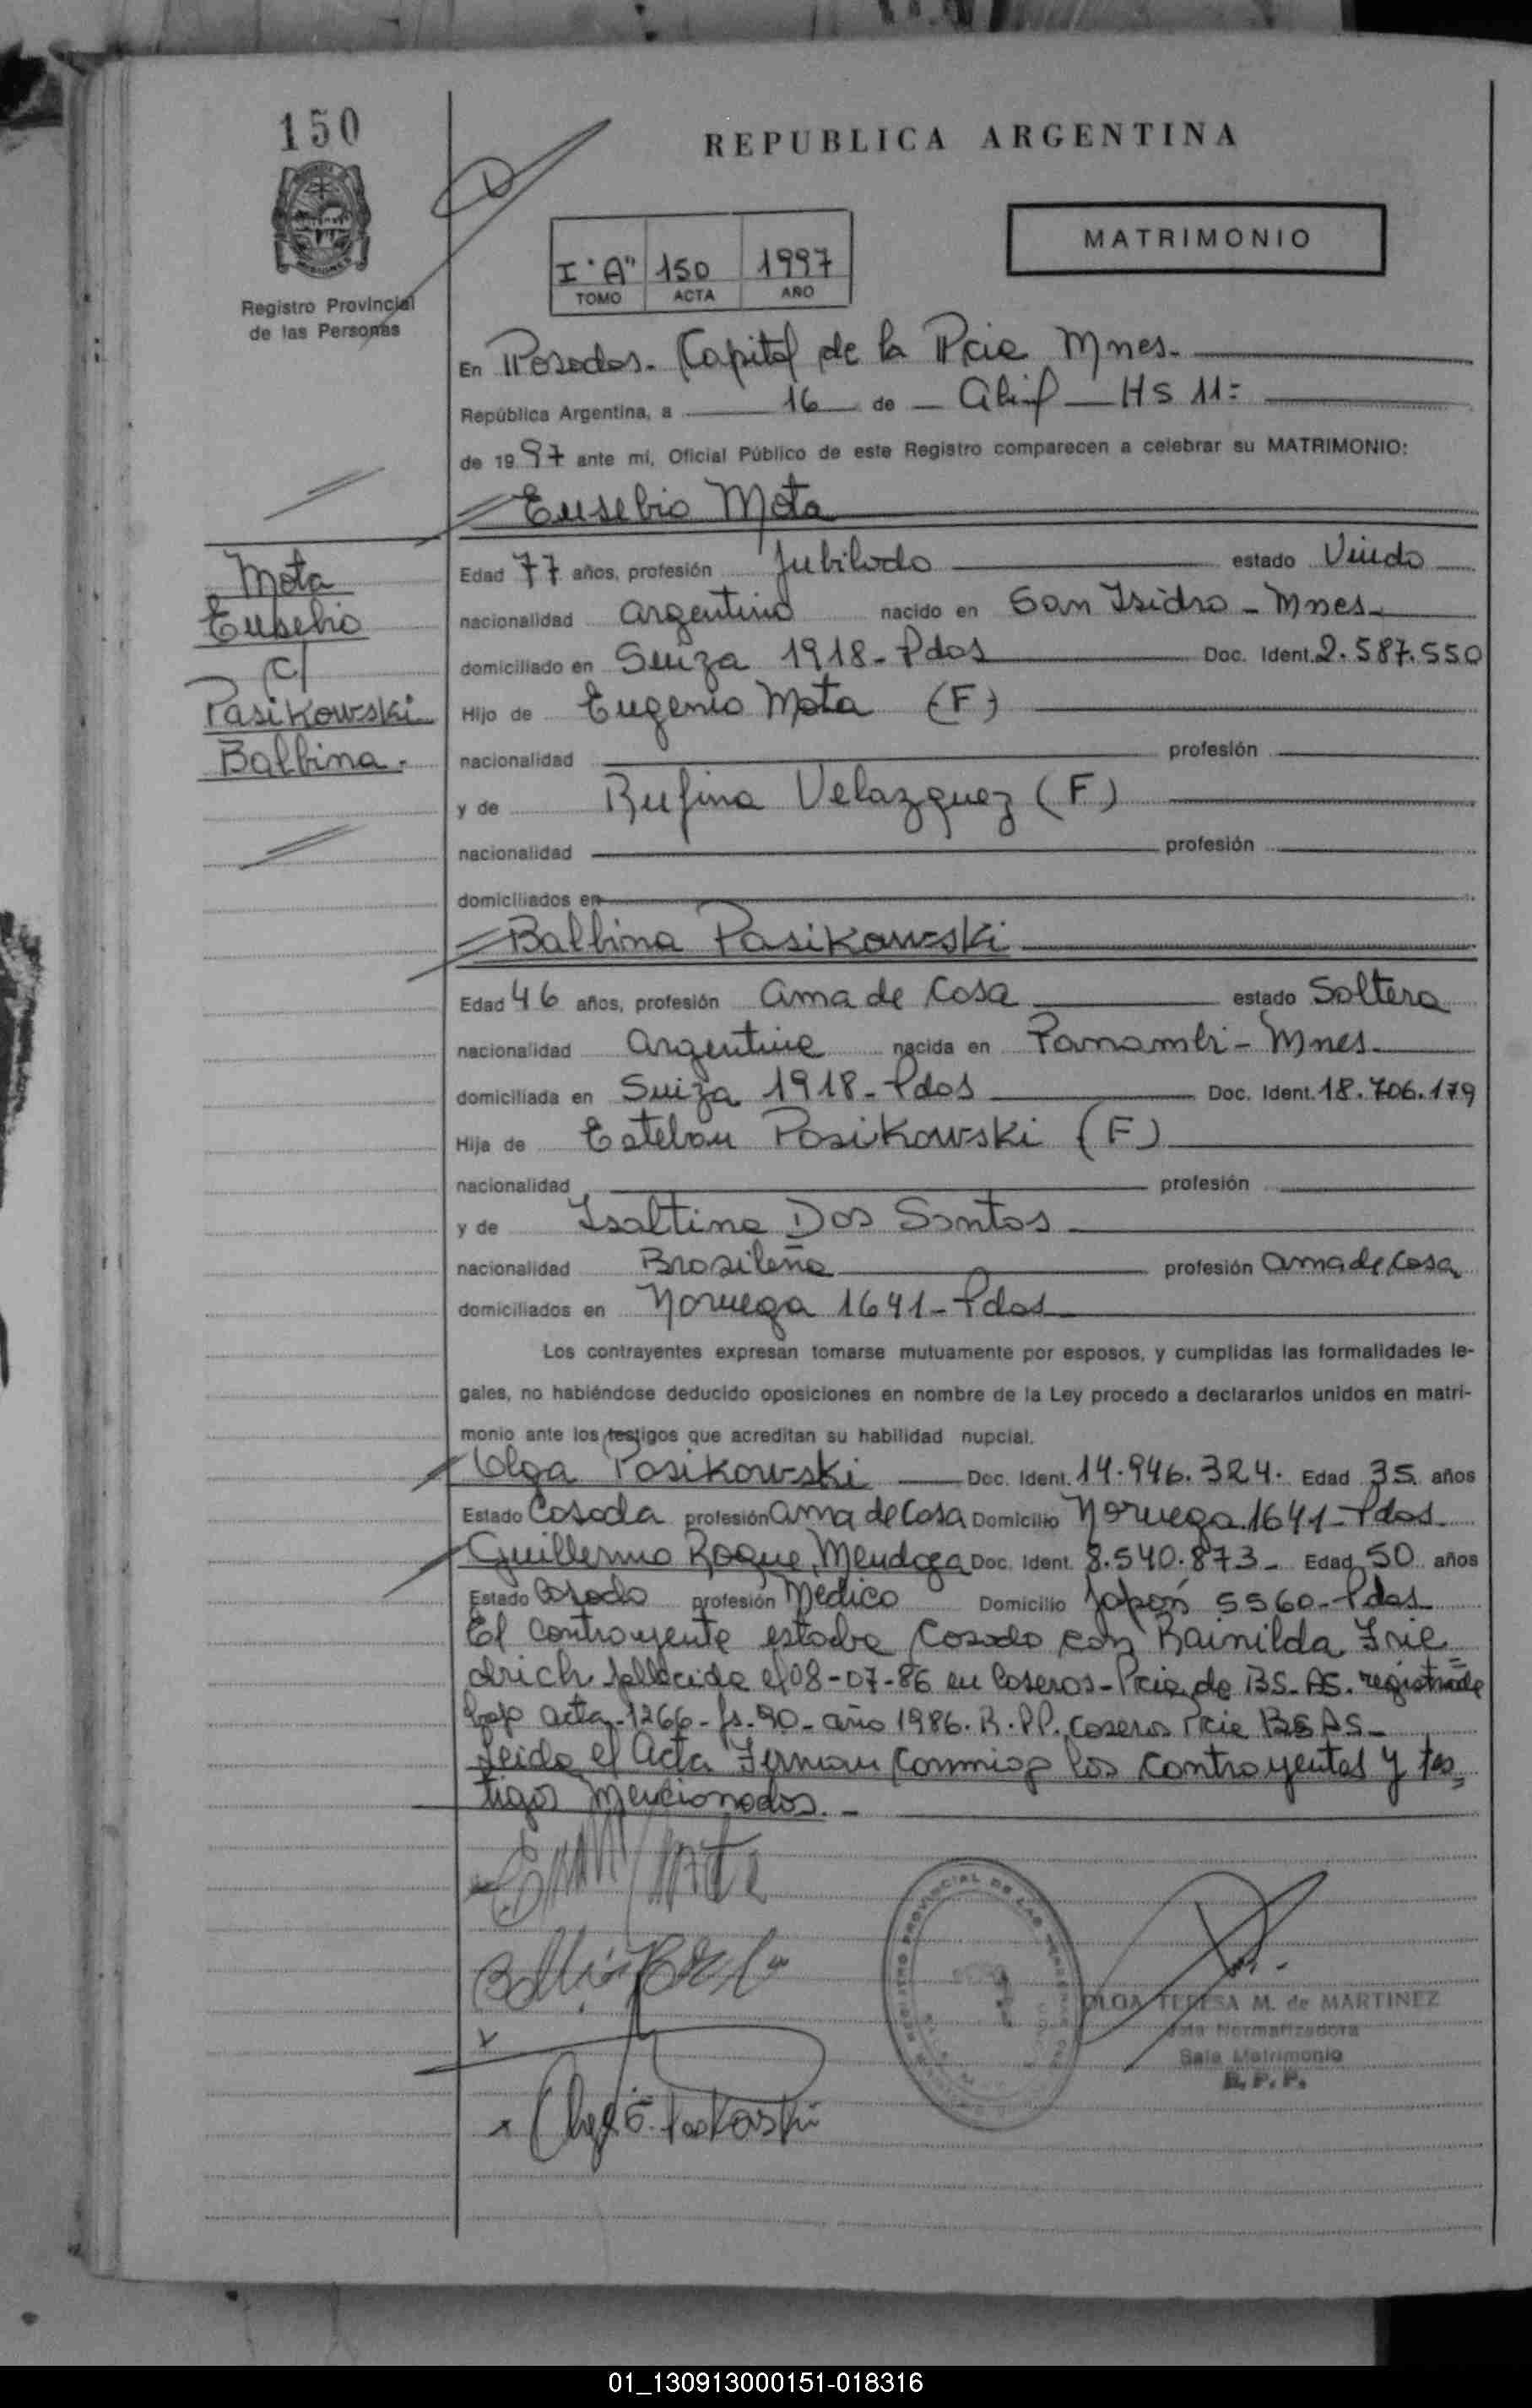 150
REPUBLICA ARGENTINA
MATRIMONIO
I "A" 150 1997
TOMO ACTA AÑO
Registro Provincial
de las Personas
En Posadas. Capital de la Pcia Mnes.
República Argentina, a 16 de Abril HS 11=
de 1997 ante mí, Oficial Público de este Registro comparecen a celebrar su MATRIMONIO:
Eusebio Mota
Mota
Eusebio
C/
Pasikowski
Balbina.
Edad 77 años, profesión Jubilado estado Viudo
nacionalidad argentino nacido en San Isidro - Mnes.
domiciliado en Suiza 1918 - Pdas Doc. Ident. 2.587.550
Hijo de Eugenio Mota (F)
nacionalidad profesión
y de Rufina Velazquez (F)
nacionalidad profesión
domiciliados en
Balbina Pasikowski
Edad 46 años, profesión ama de casa estado Soltera
nacionalidad Argentina nacida en Panambi - Mnes.
domiciliada en Suiza 1918 - Pdas Doc. Ident. 18.706.179
Hija de Esteban Pasikowski (F)
nacionalidad profesión
y de Isaltina Dos Santos
nacionalidad Brasileña profesión ama de casa
domiciliados en Noruega 1641 - Pdas
Los contrayentes expresan tomarse mutuamente por esposos, y cumplidas las formalidades le-
gales, no habiéndose deducido oposiciones en nombre de la Ley procedo a declararlos unidos en matri-
monio ante los testigos que acreditan su habilidad nupcial.
Olga Pasikowski Doc. Ident. 14.946.324. Edad 35 años
Estado Casada profesión ama de casa Domicilio Noruega 1641 - Pdas
Guillermo Roque Mendoza Doc. Ident. 8.540.873 - Edad 50 años
Estado Casado profesión Medico Domicilio Japón 5560 - Pdas
El contrayente estaba casado con Rainilda Frie=
drich fallecida el 08-07-86 en Caseros - Pcia de BS. AS. registrada
bajo acta 1266 - fs. 90 - año 1986. R.PP. Caseros Pcia BS AS -
Leida el Acta Firman conmigo los contrayentes y tes=
tigos mencionados. -
REGISTRO PROVINCIAL DE LAS
OLGA TERESA M. de MARTINEZ
Jefa Normatizadora
Sala Matrimonio
R. P. P.
01_130913000151-018316